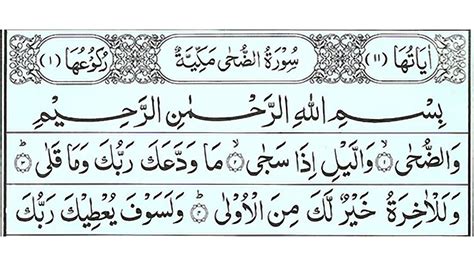 اٰيَاتُهَا (١١) سُوْرَةُ الضُّحٰى مَكِّيَّةٌ رُكُوْعُهَا (١)
بِسْمِ اللّٰهِ الرَّحْمٰنِ الرَّحِيْمِ
وَالضُّحٰى ۝١ وَالَّيْلِ اِذَا سَجٰى ۝٢ مَا وَدَّعَكَ رَبُّكَ وَمَا قَلٰى ۝٣
وَلَلْاٰخِرَةُ خَيْرٌ لَّكَ مِنَ الْاُوْلٰى ۝٤ وَلَسَوْفَ يُعْطِيْكَ رَبُّكَ